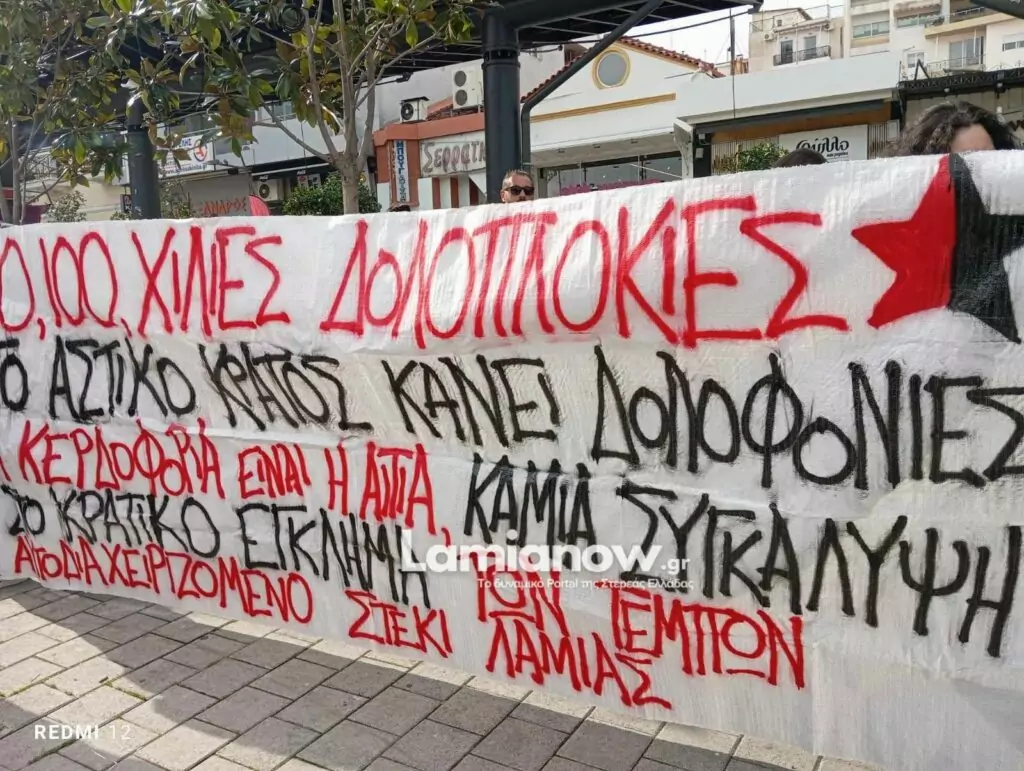 ΣΕΡΡΑΙΚ
0,100, ΧΙΛΙΕΣ ΔΟΛΟΠΛΟΚΙΕΣ
ΤΟ ΑΣΤΙΚΟ ΚΡΑΤΟΣ ΚΑΝΕΙ ΔΟΛΟΦΟΝΙΕΣ
Η ΚΕΡΔΟΦΟΡΙΑ ΕΙΝΑΙ Η ΑΙΤΙΑ, ΚΑΜΙΑ ΣΥΓΚΑΛΥΨΗ
ΣΤΟ ΚΡΑΤΙΚΟ ΕΓΚΛΗΜΑ ΤΩΝ ΤΕΜΠΩΝ
ΑΥΤΟΔΙΑΧΕΙΡΙΖΟΜΕΝΟ ΣΤΕΚΙ ΛΑΜΙΑΣ
Lamianow.gr
Το δυναμικό Portal της Στερεάς Ελλάδας
REDMI 12